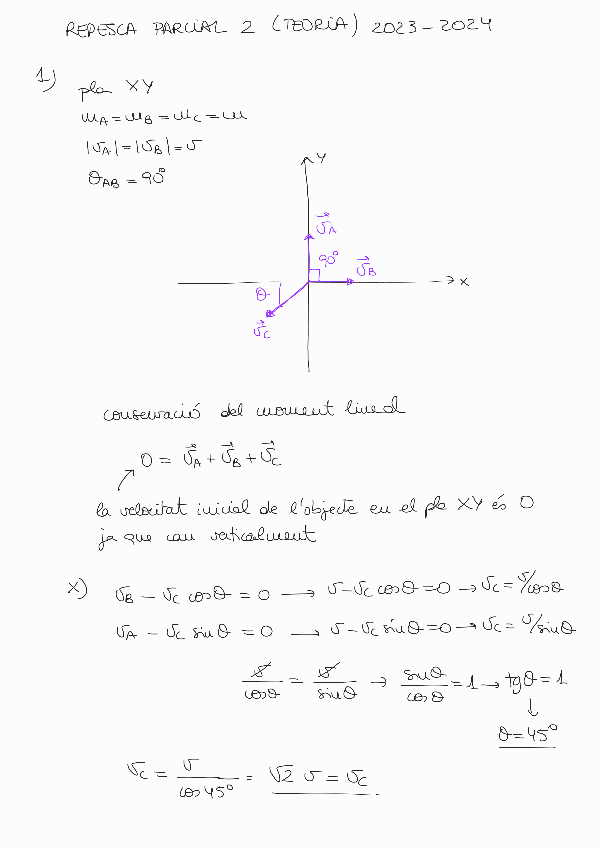 REPESCA PARCIAL 2 (TEORIA) 2023-2024
1) pla XY
m_A = m_B = m_C = m
|v_A| = |v_B| = v
θ_AB = 90°
Y
v⃗_A
90°
v⃗_B
X
θ
v⃗_C
conservació del moment lineal
0 = v⃗_A + v⃗_B + v⃗_C
la velocitat inicial de l'objecte en el pla XY és 0
ja que cau verticalment
X) v_B - v_C cosθ = 0 → v - v_C cosθ = 0 → v_C = v/cosθ
v_A - v_C sinθ = 0 → v - v_C sinθ = 0 → v_C = v/sinθ
v/cosθ = v/sinθ → sinθ/cosθ = 1 → tgθ = 1
↓
θ = 45°
v_C = v/cos45° = √2 v = v_C